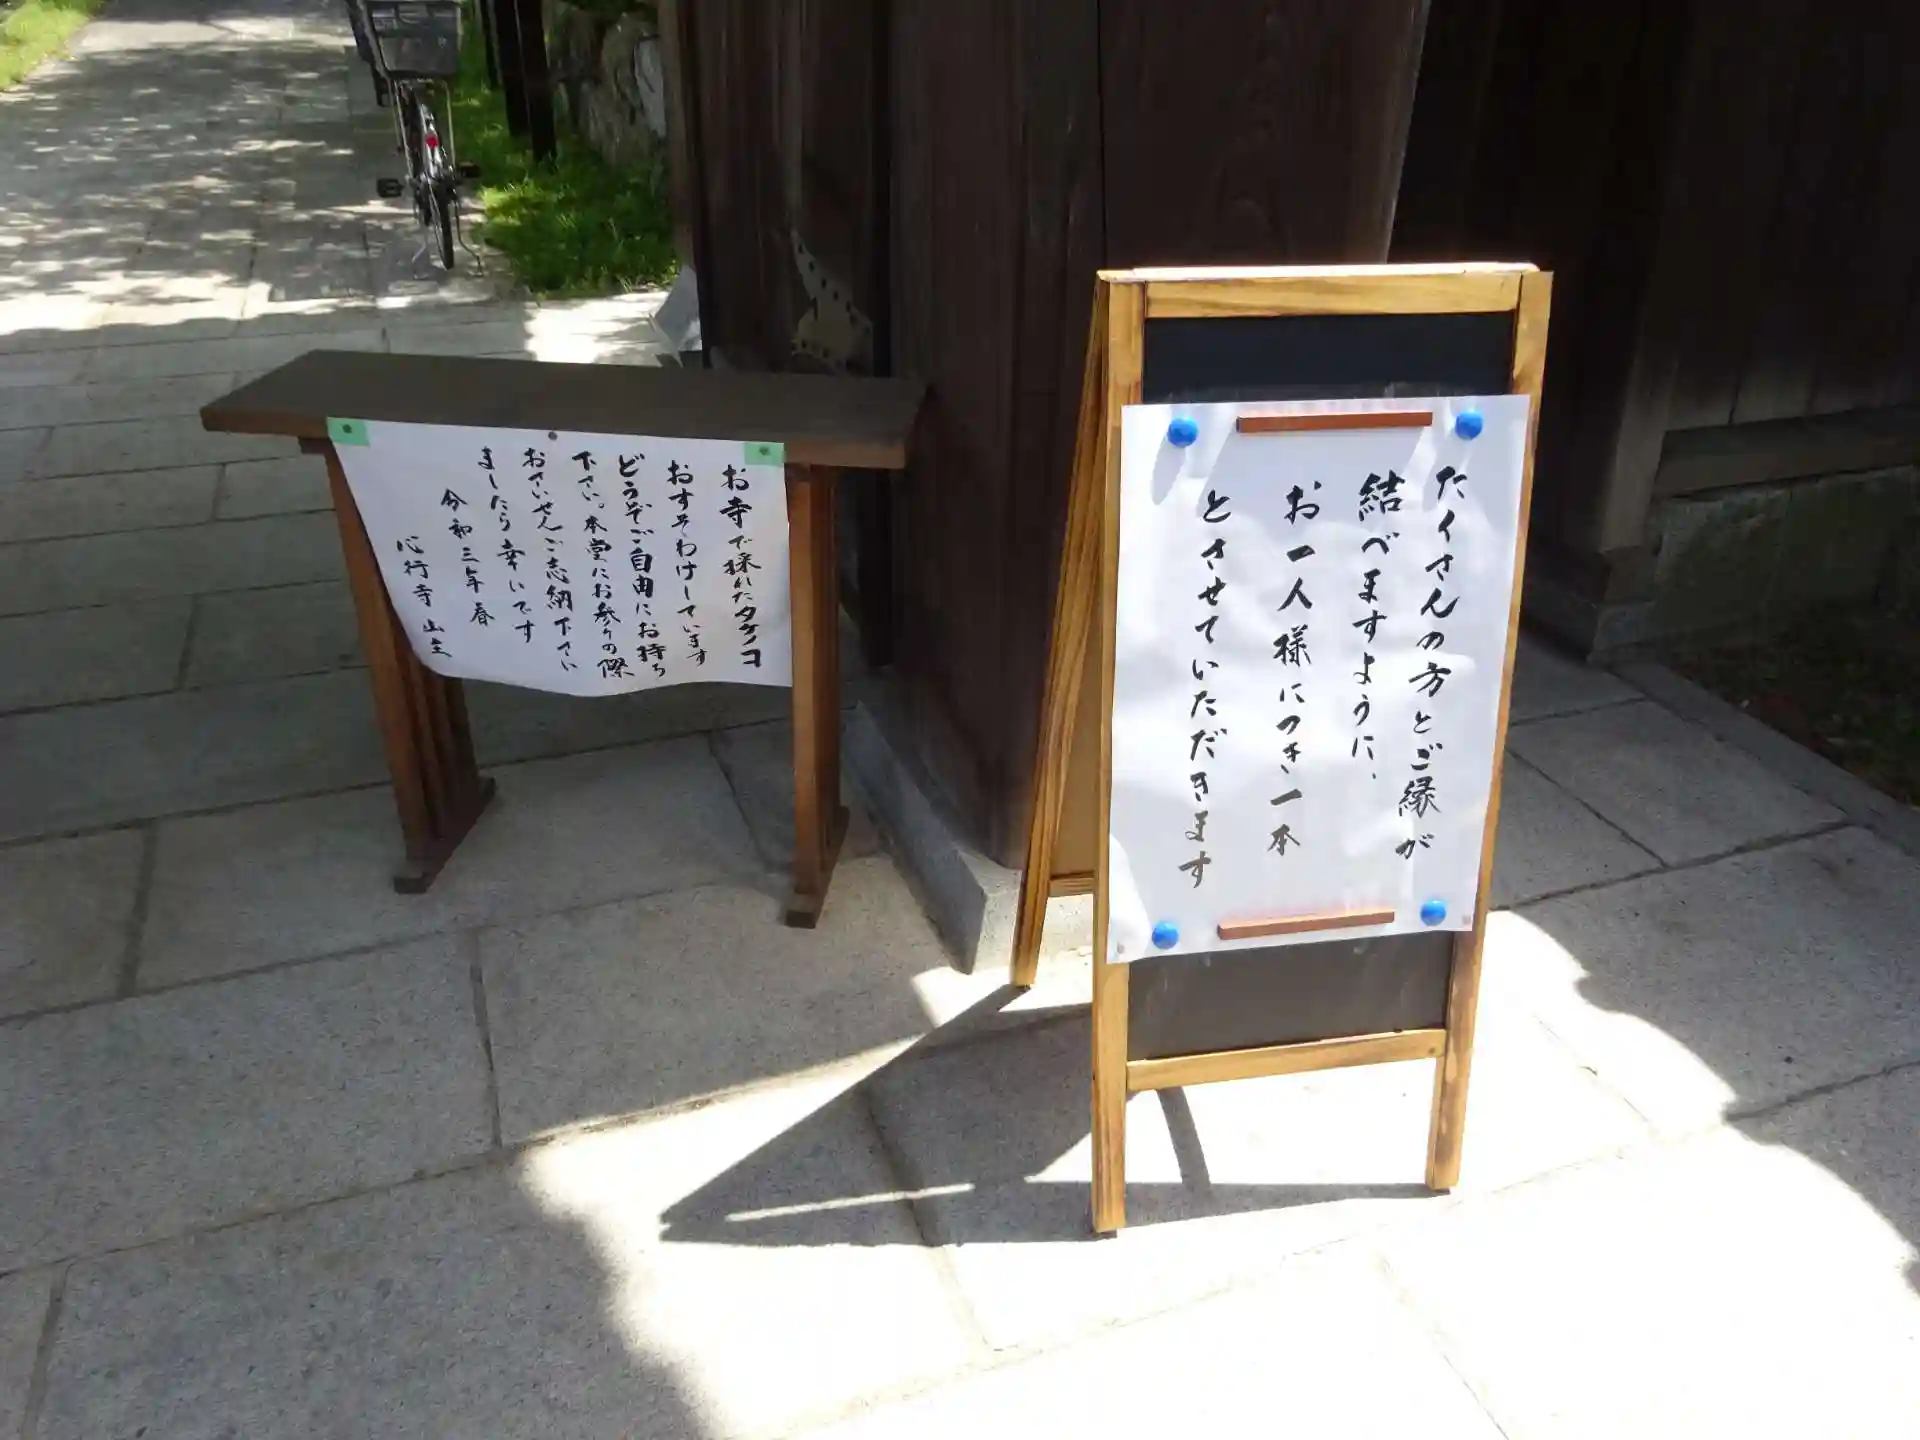 お寺で採れたタケノコ
おすそわけしています
どうぞご自由にお持ち
下さい。本堂にお参りの際
おさいせんご志納下さい
ましたら幸いです
令和三年春
心行寺山主
たくさんの方とご縁が
結べますように、
お一人様につき一本
とさせていただきます